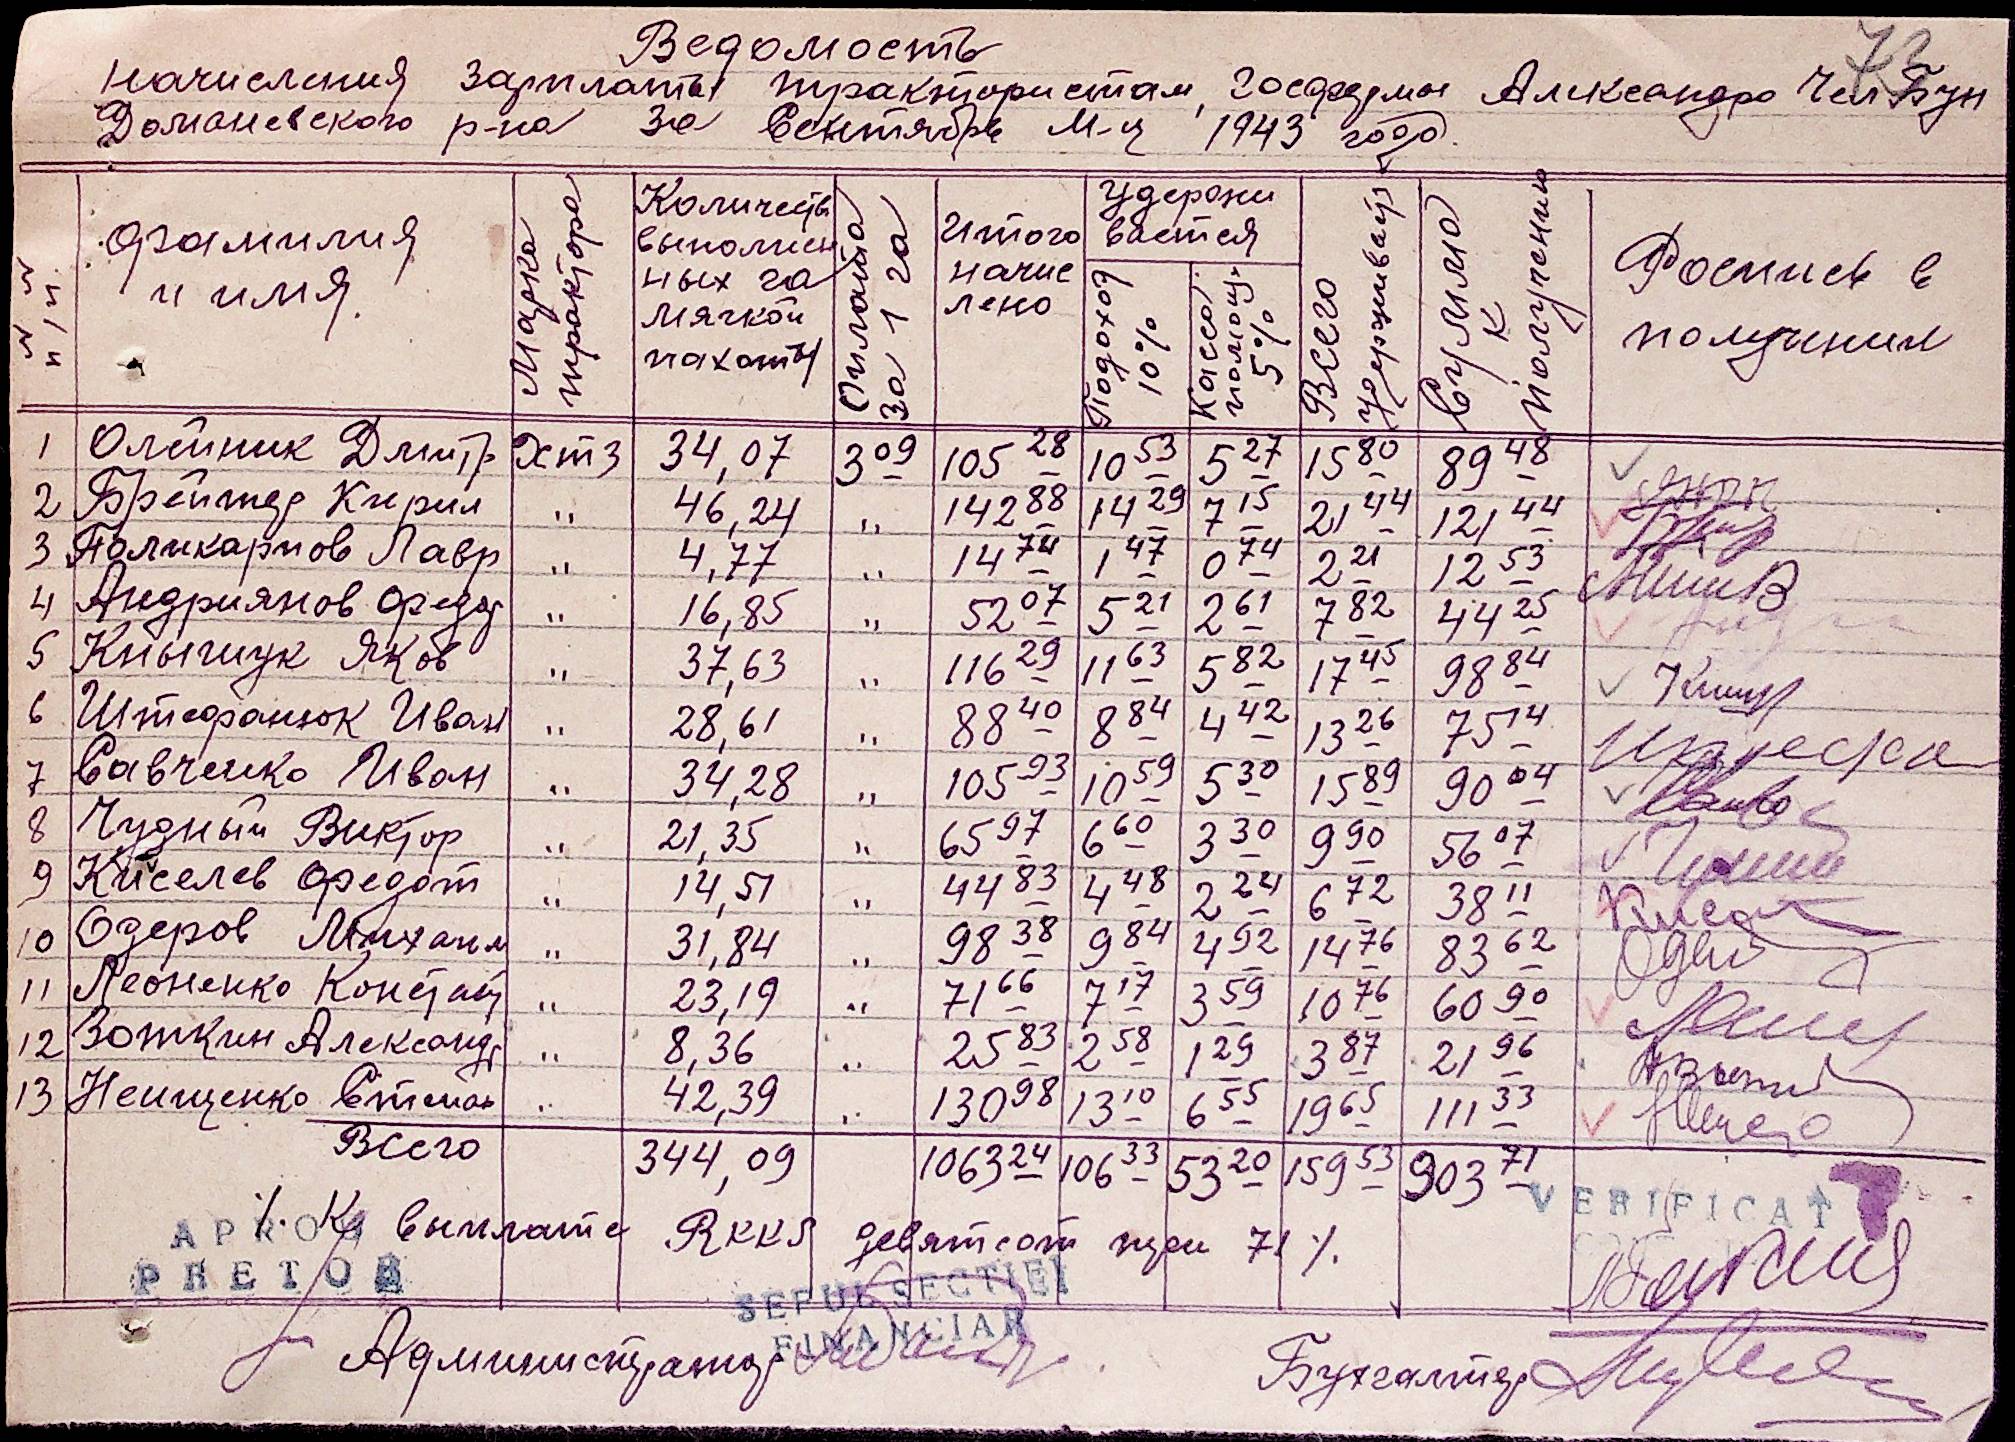 73
Ведомость
начисления зарплаты трактористам, госфермы Александро Чел Бун
Доманевского р-на за Сентябрь М-ц 1943 года.
№ № п/п
фамилия и имя.
Марка трактора
Количеств выполнен ных га мягкой пахоты
Оплата за 1 га
Итого начис лено
Удержи вается
Подоход 10%
Касса помощи 5%
Всего удерживают
Сумма к получению
Роспись в получении
1 Олейник Дмитр ХТЗ 34,07 3 09 105 28 10 53 5 27 15 80 89 48
2 Брейтер Кирил " 46,24 " 142 88 14 29 7 15 21 44 121 44
3 Поликарпов Лавр " 4,77 " 14 74 1 47 0 74 2 21 12 53
4 Андриянов Федор " 16,85 " 52 07 5 21 2 61 7 82 44 25
5 Кнышук Яков " 37,63 " 116 29 11 63 5 82 17 45 98 84
6 Штефанюк Иван " 28,61 " 88 40 8 84 4 42 13 26 75 14
7 Савченко Иван " 34,28 " 105 93 10 59 5 30 15 89 90 04
8 Чудный Виктор " 21,35 " 65 97 6 60 3 30 9 90 56 07
9 Киселев Федот " 14,51 " 44 83 4 48 2 24 6 72 38 11
10 Озеров Михаил " 31,84 " 98 38 9 84 4 92 14 76 83 62
11 Леоненко Констант " 23,19 " 71 66 7 17 3 59 10 76 60 90
12 Зоткин Александр " 8,36 " 25 83 2 58 1 29 3 87 21 96
13 Неищенко Степан " 42,39 " 130 98 13 10 6 55 19 65 111 33
Всего 344,09 1063 24 106 33 53 20 159 53 903 71
VERIFICAT
К выплате RKKS девятсот три 71
APROB
PRETOR
SEFUL SECTIEI
FINANCIAR
Администратор
Бухгалтер